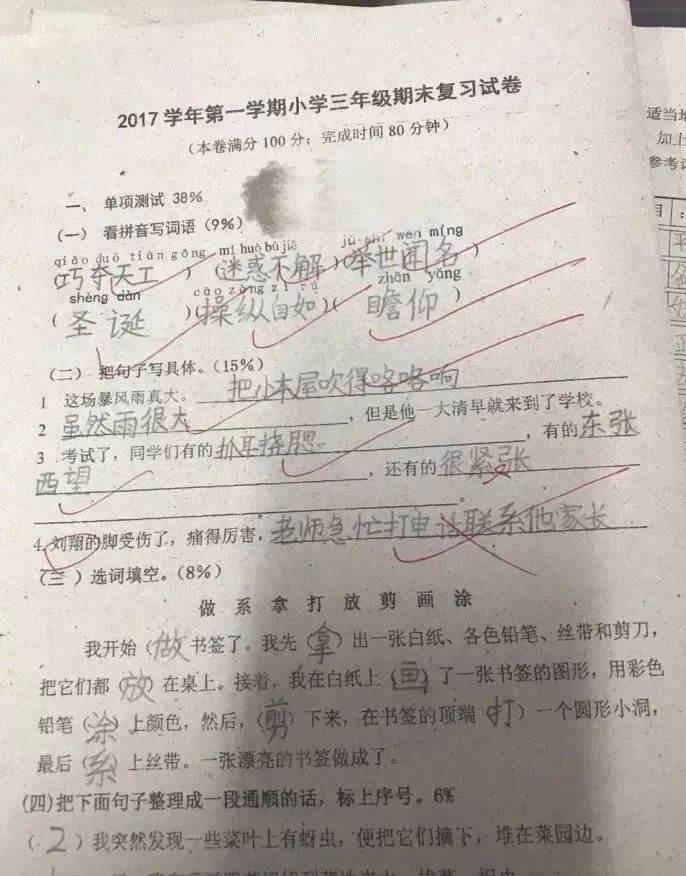 2017 学年第一学期小学三年级期末复习试卷
（本卷满分 100 分；完成时间 80 分钟）
适当地
加上
参考
一、 单项测试 38%
（一） 看拼音写词语（9%）
qiǎo duó tiān gōng mí huò bù jiě jǔ shì wén míng
（巧夺天工 ）（迷惑不解 ）（举世闻名 ）
shèng dàn cāo zòng zì rú zhān yǎng
（ 圣诞 ）（操纵自如）（ 瞻仰 ）
（二） 把句子写具体。（15%）
1 这场暴风雨真大。 把小木屋吹得咯咯响
2 虽然雨很大 ，但是他一大清早就来到了学校。
3 .考试了，同学们有的抓耳挠腮 ，有的东张
西望 ，还有的很紧张
。
4.刘翔的脚受伤了，痛得厉害，老师急忙打电话联系他家长
（三 ）选词填空。（8%）
做 系 拿 打 放 剪 画 涂
我开始（做）书签了。我先（拿）出一张白纸、各色铅笔、丝带和剪刀，
把它们都（放）在桌上。接着，我在白纸上（画）了一张书签的图形，用彩色
铅笔（涂）上颜色，然后，（剪）下来，在书签的顶端（打）一个圆形小洞，
最后（系）上丝带。一张漂亮的书签做成了。
(四)把下面句子整理成一段通顺的话，标上序号。6%
（ 2 ）我突然发现一些菜叶上有蚜虫，便把它们摘下，堆在菜园边。